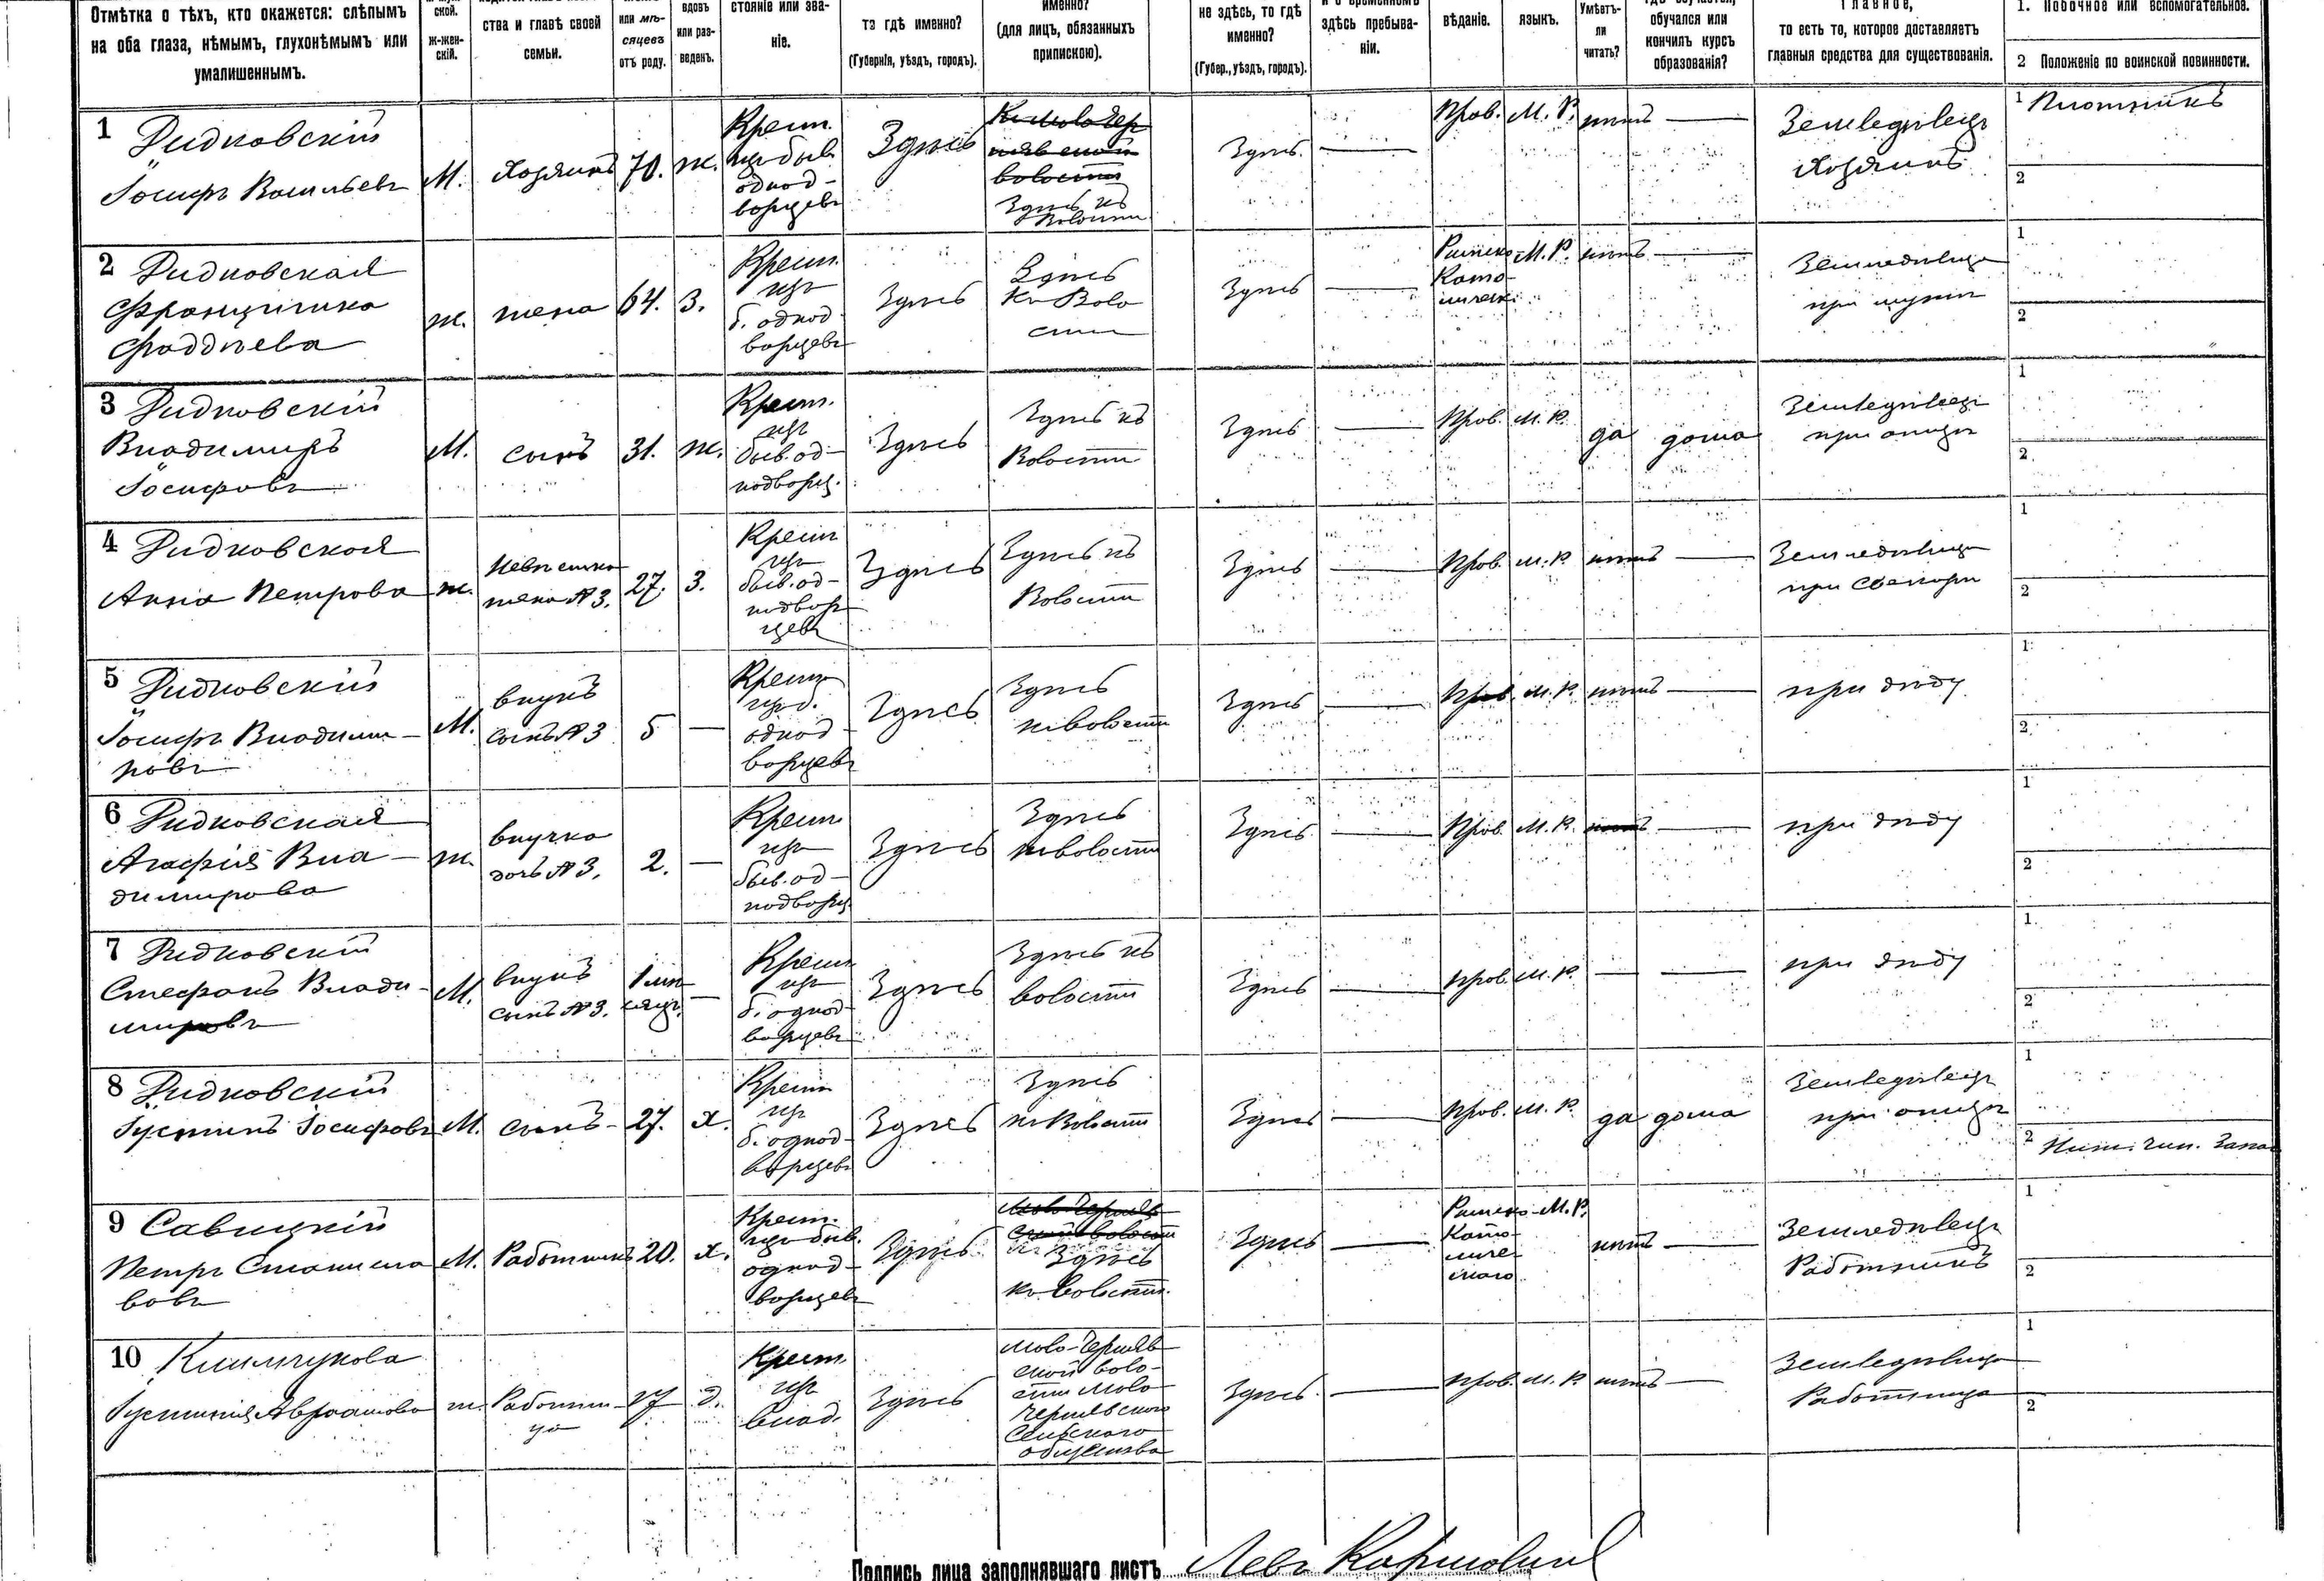 Отмѣтка о тѣхъ, кто окажется: слѣпымъ
на оба глаза, нѣмымъ, глухонѣмымъ или
умалишеннымъ.
ской.
ж-жен-
скій.
ства и главѣ своей
семьи.
или мѣ-
сяцевъ
отъ роду.
вдовъ
или раз-
веденъ.
стояніе или зва-
ніе.
та гдѣ именно?
(Губернія, уѣздъ, городъ).
именно?
(для лицъ, обязанныхъ
припискою).
не здѣсь, то гдѣ
именно?
(Губер., уѣздъ, городъ).
здѣсь пребыва-
ніи.
вѣданіе.
языкъ.
Умѣетъ-
ли
читать?
обучался или
кончилъ курсъ
образованія?
Главное,
то есть то, которое доставляетъ
главныя средства для существованія.
1. Побочное или вспомогательное.
2 Положеніе по воинской повинности.
1 Ридковскій
Іосифъ Васильевъ
М.
Хозяинъ
70.
ж.
Крест.
изъ быв.
однод-
ворцевъ
Здѣсь
волости
Здѣсь къ
Волости
Здѣсь
Прав.
М. Р.
нѣтъ
Земледѣлецъ
Хозяинъ
1 Плотникъ
2
2 Ридковская
Францишка
Фаддѣева
ж.
жена
64.
З.
Крест.
изъ
б. однод
ворцевъ
Здѣсь
Здѣсь
къ Воло
сти
Здѣсь
Римско-
Като-
личес.
М. Р.
нѣтъ
Земледѣлица
при мужѣ
1
2
3 Ридковскій
Владимиръ
Іосифовъ
М.
сынъ
31.
ж.
Крест.
изъ
быв. од-
нодворц.
Здѣсь
Здѣсь къ
Волости
Здѣсь
Прав.
М. Р.
да
дома
Земледѣлецъ
при отцѣ
1
2
4 Ридковская
Анна Петрова
ж.
Невѣстка
жена №3.
27.
З.
Крест
изъ
быв. од-
нодвор
цевъ
Здѣсь
Здѣсь къ
Волости
Здѣсь
Прав.
М. Р.
нѣтъ
Земледѣлица
при Свекорѣ
1
2
5 Ридковскій
Іосифъ Владими-
ровъ
М.
внукъ
сынъ №3
5
Крест
изъ
однод-
ворцевъ
Здѣсь
Здѣсь
къ волости
Здѣсь
Прав.
М. Р.
нѣтъ
при дѣду
1
2
6 Ридковская
Агафія Вла-
димирова
ж.
внучка
дочь №3.
2.
Крест
изъ
быв. од-
нодворц.
Здѣсь
Здѣсь
къ волости
Здѣсь
Прав.
М. Р.
нѣтъ
при дѣду
1
2
7 Ридковскій
Стефанъ Влади-
мировъ
М.
внукъ
сынъ №3.
1 мѣ
сяцъ.
Крест
изъ
б. однод-
ворцевъ
Здѣсь
Здѣсь къ
волости
Здѣсь
Прав.
М. Р.
при дѣду
1
2
8 Ридковскій
Іустинъ Іосифовъ
М.
сынъ
27.
х.
Крест
изъ
б. однод-
ворцевъ
Здѣсь
Здѣсь
къ Волости
Здѣсь
Прав.
М. Р.
да
дома
Земледѣлецъ
при отцѣ
1
2 Ниж. чин. Запас
9 Савицкій
Петръ Станисла
вовъ
М.
Работникъ
20.
х.
Крест.
изъ быв.
однод-
ворцевъ
Здѣсь
Здѣсь
къ волости.
Здѣсь
Римско-
Като-
личе-
скаго
М. Р.
нѣтъ
Земледѣлецъ
Работникъ
1
2
10 Климчукова
Іустинія Авраамова
ж.
Работни-
ца
17
д.
Крест.
изъ
влад.
Здѣсь
ской воло-
сти Мало
Сельскаго
общества
Здѣсь
Прав.
М. Р.
нѣтъ
Земледѣлица
Работница
1
2
Подпись лица заполнявшаго листъ
Левъ